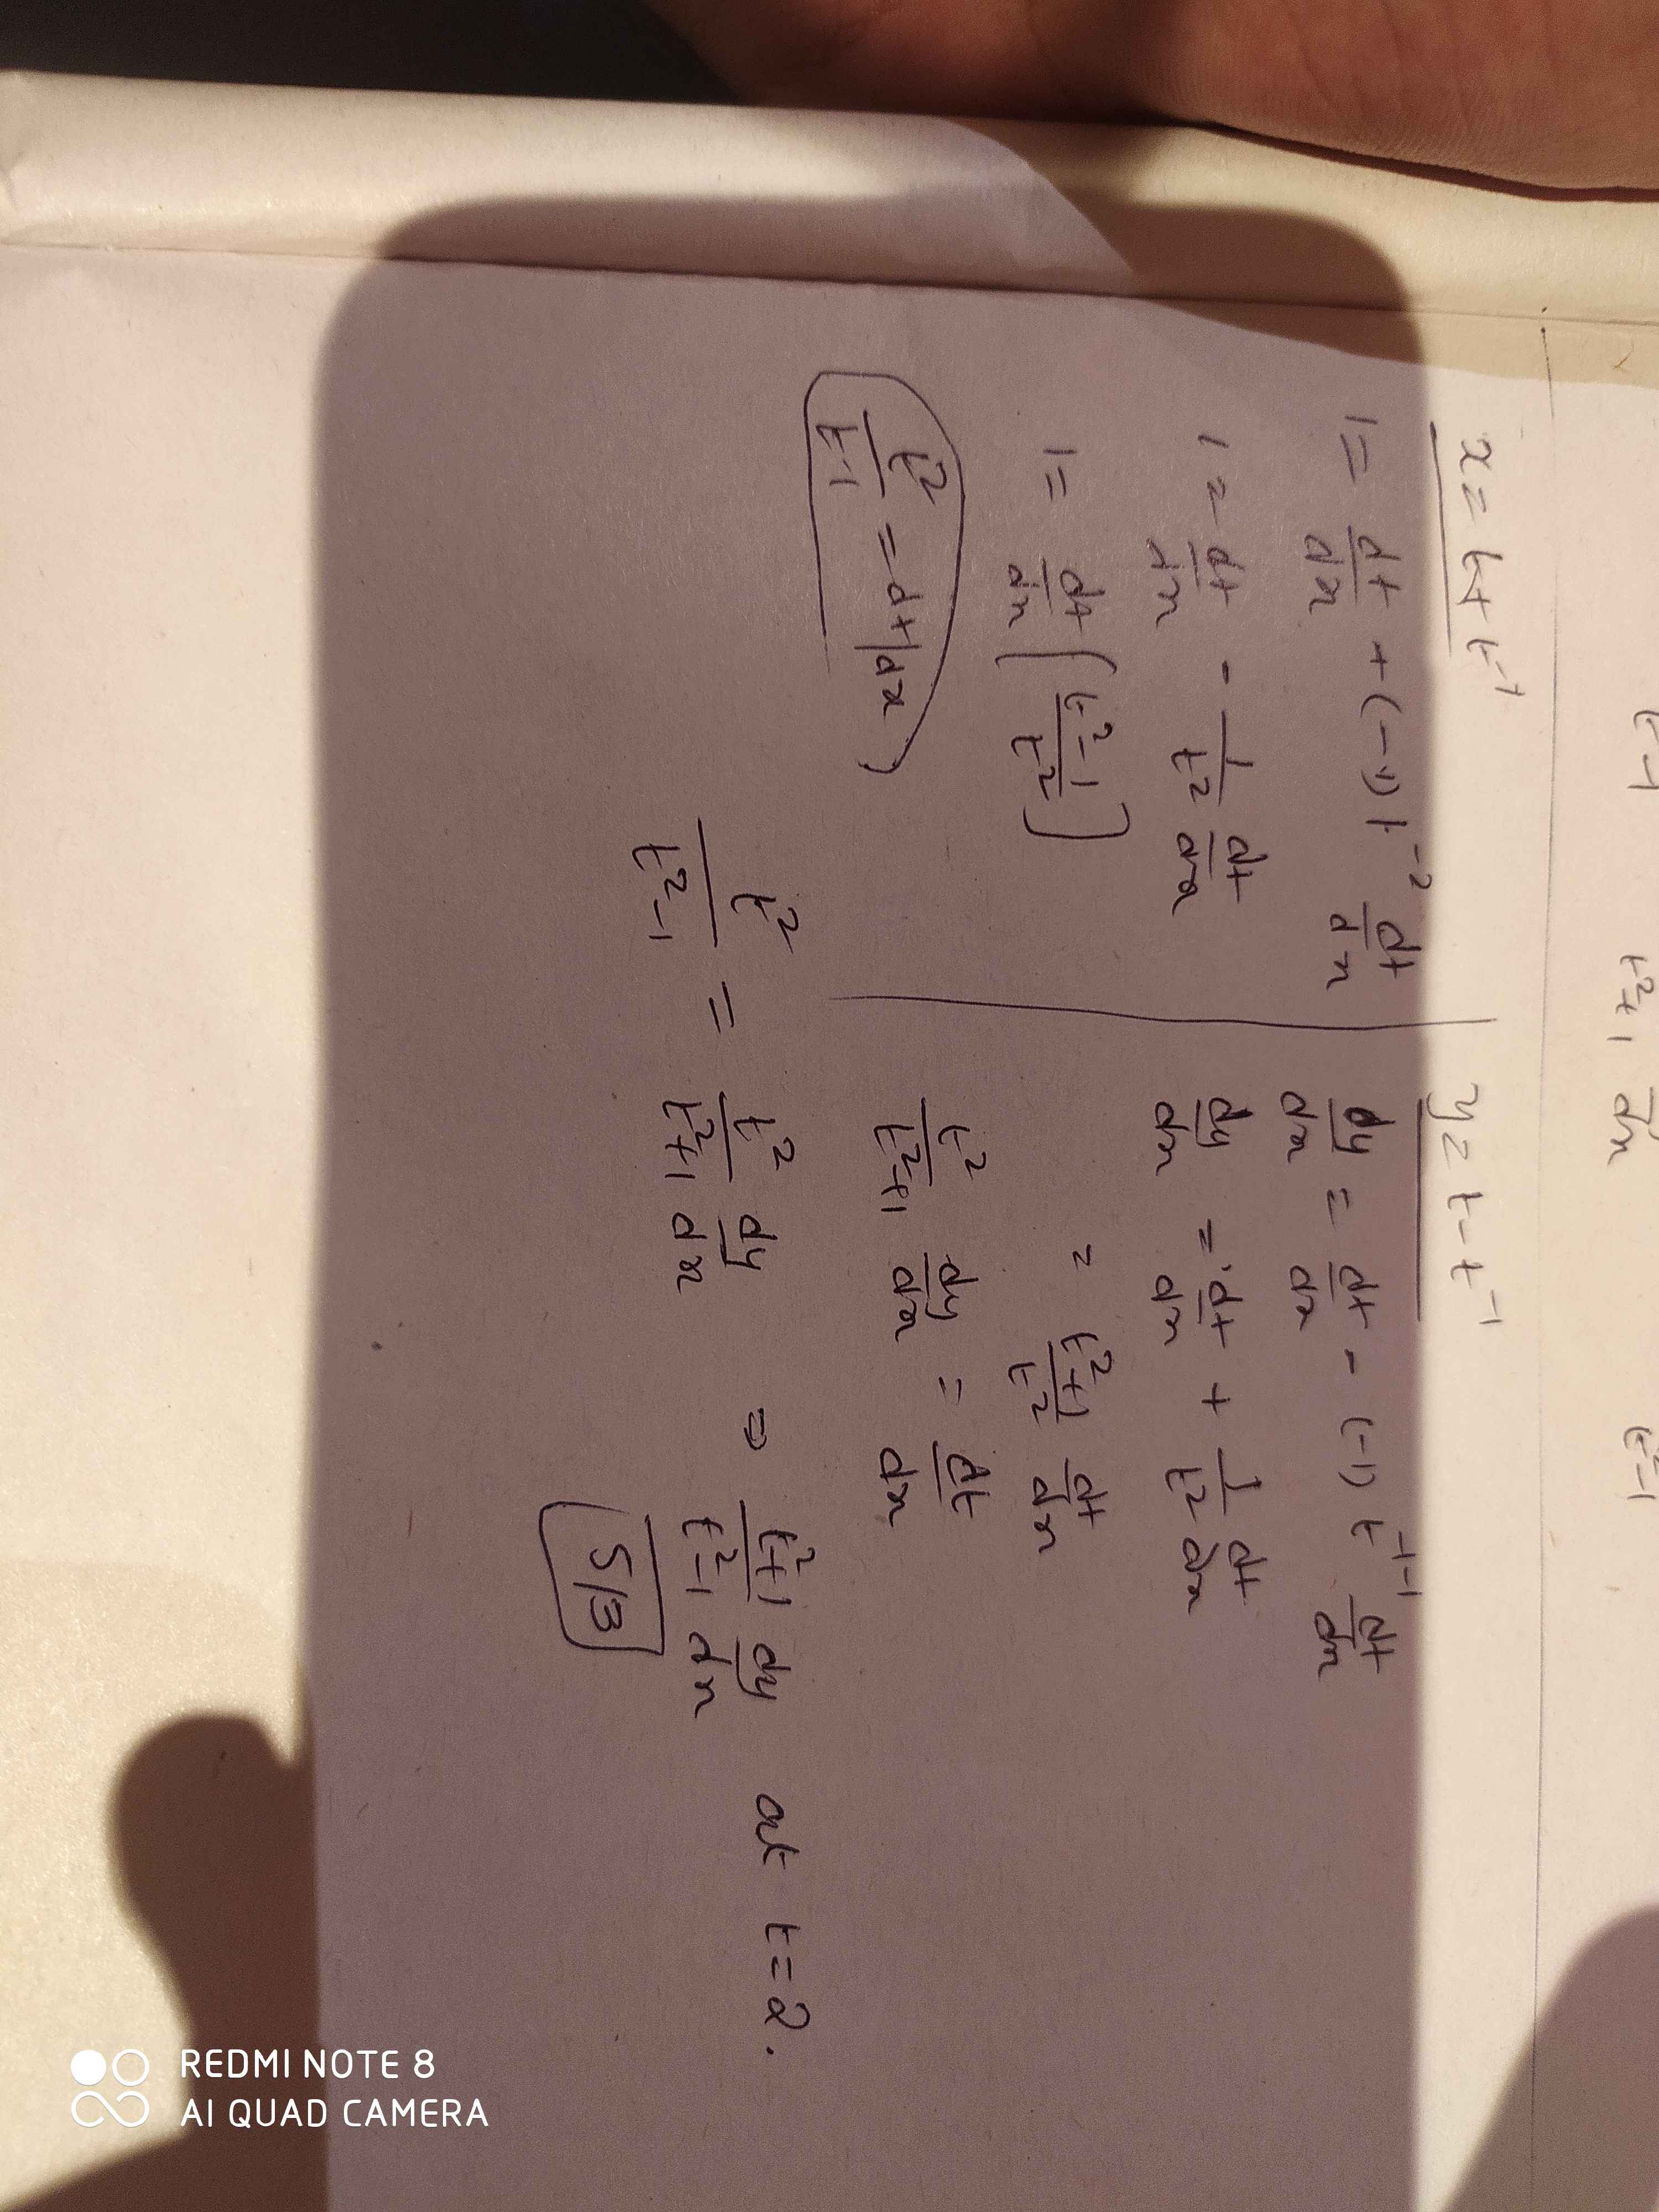 t-1 t²+1 dx t²-1
x = t + t⁻¹
1 = dt/dx + (-1) t⁻² dt/dx
1 = dt/dx - 1/t² dt/dx
1 = dt/dx [t²-1/t²]
t²/t-1 = dt/dx
y = t - t⁻¹
dy/dx = dt/dx - (-1) t⁻¹⁻¹ dt/dx
dy/dx = dt/dx + 1/t² dt/dx
= t²+1/t² dt/dx
t²/t²+1 dy/dx = dt/dx
t²/t²-1 = t²/t²+1 dy/dx = t²+1/t²-1 dy/dx at t=2.
5/3
REDMI NOTE 8
AI QUAD CAMERA